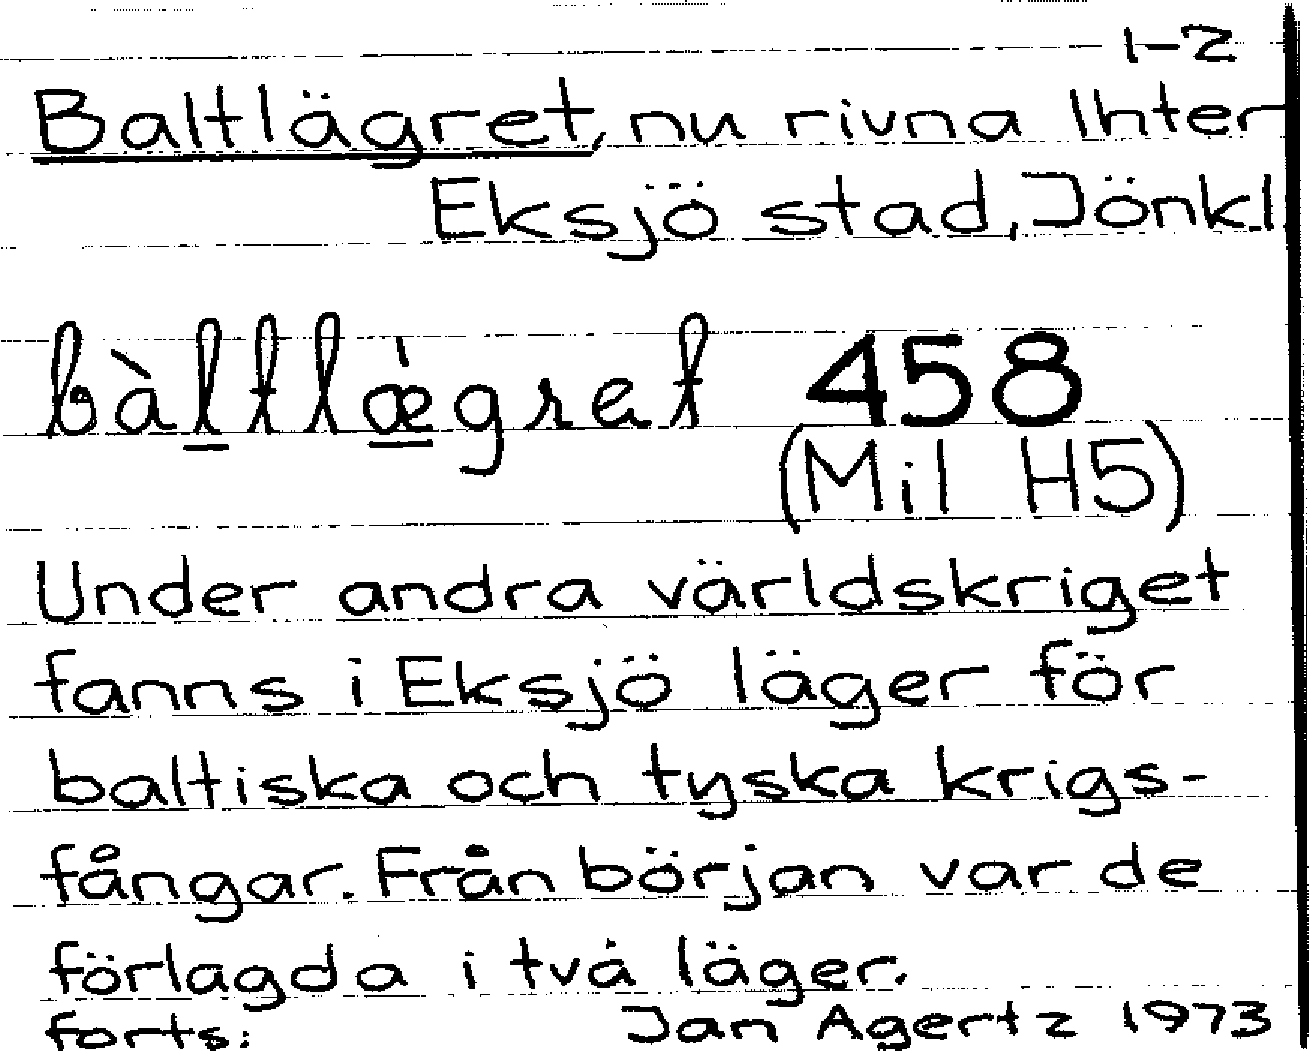 1-2
Baltlägret, nu rivna Inter
Eksjö stad, Jönk.l
bàltlǽgret 458
(Mil H5)
Under andra världskriget
fanns i Eksjö läger för
baltiska och tyska krigs-
fångar. Från början var de
förlagda i två läger.
forts: Jan Agertz 1973